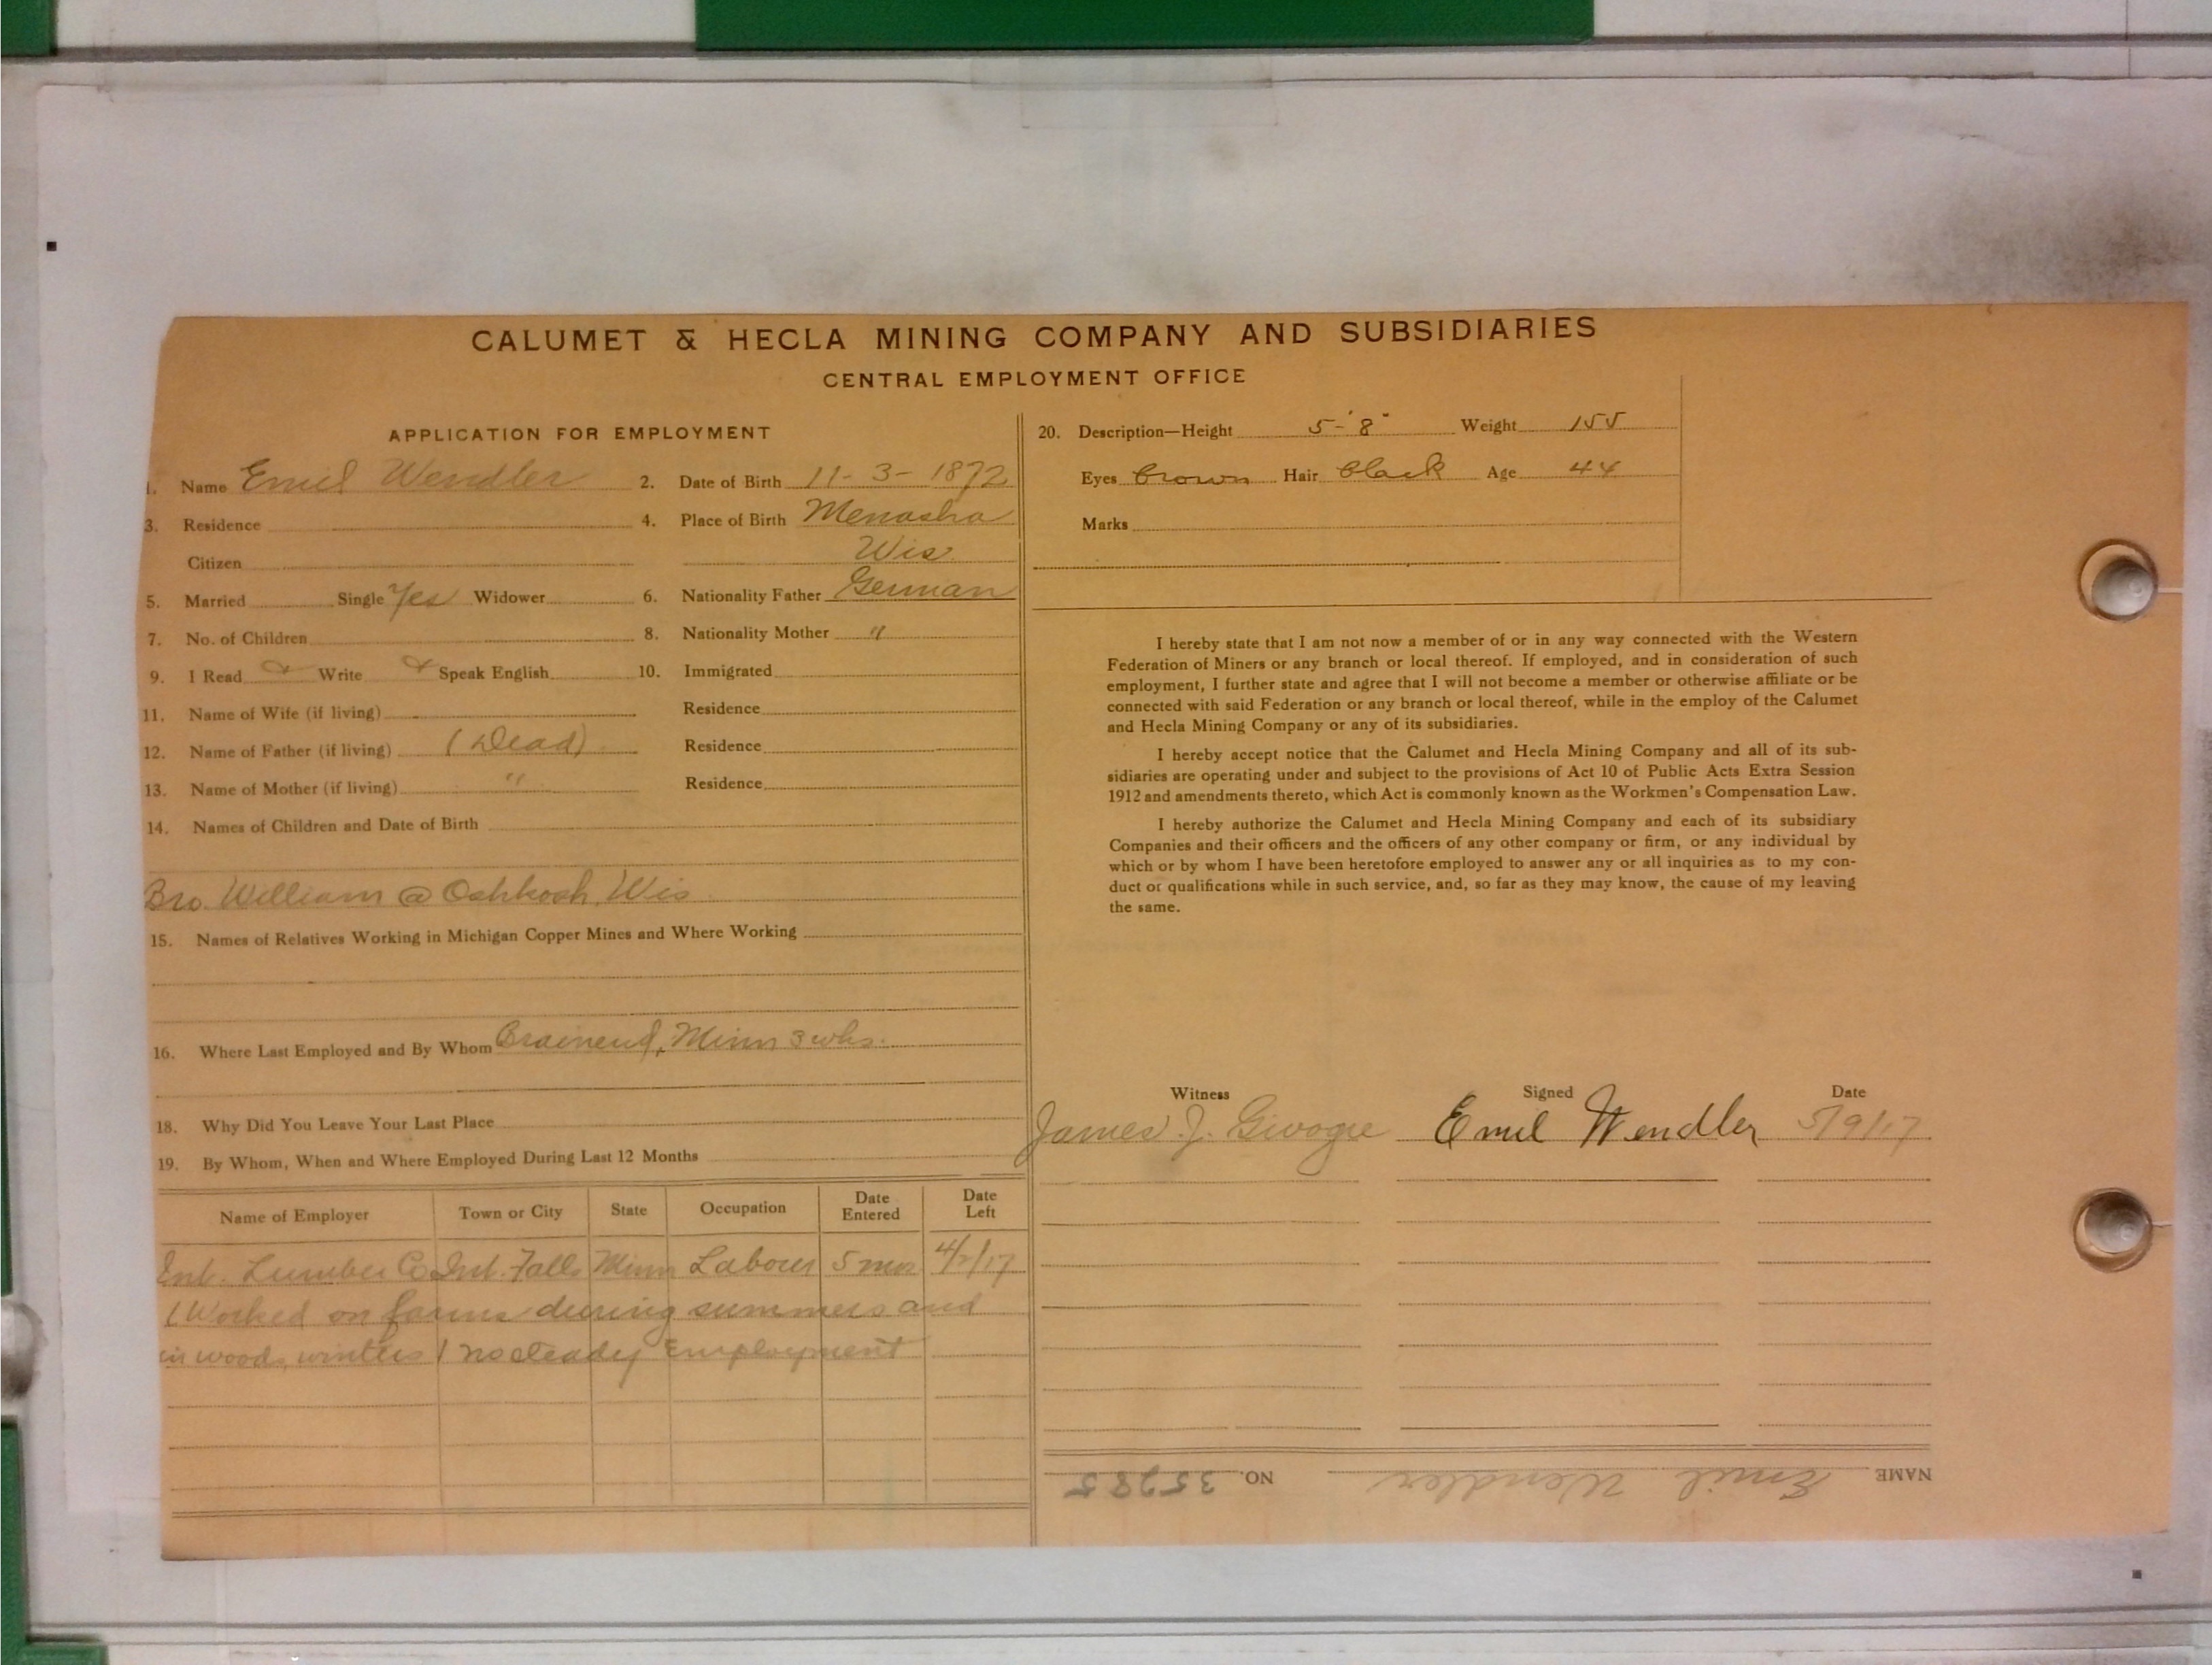 CALUMET & HECLA MINING COMPANY AND SUBSIDIARIES
CENTRAL EMPLOYMENT OFFICE
APPLICATION FOR EMPLOYMENT
1. Name Emil Wendler 2. Date of Birth 11-3-1872
3. Residence 4. Place of Birth Menasha
Citizen Wis
5. Married Single Yes Widower 6. Nationality Father German
7. No. of Children 8. Nationality Mother "
9. I Read & Write & Speak English 10. Immigrated
11. Name of Wife (if living) Residence
12. Name of Father (if living) (Dead) Residence
13. Name of Mother (if living) " Residence
14. Names of Children and Date of Birth
Bro. William @ Oshkosh, Wis
15. Names of Relatives Working in Michigan Copper Mines and Where Working
16. Where Last Employed and By Whom Brainerd, Minn 3 wks.
18. Why Did You Leave Your Last Place
19. By Whom, When and Where Employed During Last 12 Months
Name of Employer Town or City State Occupation Date Entered Date Left
Int. Lumber Co Int. Falls Minn Labour 5 mos 4/1/17
(Worked on farms during summers and
in woods, winters) no steady Employment
20. Description—Height 5-'8" Weight 155
Eyes Brown Hair Black Age 44
Marks
I hereby state that I am not now a member of or in any way connected with the Western
Federation of Miners or any branch or local thereof. If employed, and in consideration of such
employment, I further state and agree that I will not become a member or otherwise affiliate or be
connected with said Federation or any branch or local thereof, while in the employ of the Calumet
and Hecla Mining Company or any of its subsidiaries.
I hereby accept notice that the Calumet and Hecla Mining Company and all of its sub-
sidiaries are operating under and subject to the provisions of Act 10 of Public Acts Extra Session
1912 and amendments thereto, which Act is commonly known as the Workmen's Compensation Law.
I hereby authorize the Calumet and Hecla Mining Company and each of its subsidiary
Companies and their officers and the officers of any other company or firm, or any individual by
which or by whom I have been heretofore employed to answer any or all inquiries as to my con-
duct or qualifications while in such service, and, so far as they may know, the cause of my leaving
the same.
Witness Signed Date
James J. Emil Wendler 5/9/17
NAME Emil Wendler NO. 35285